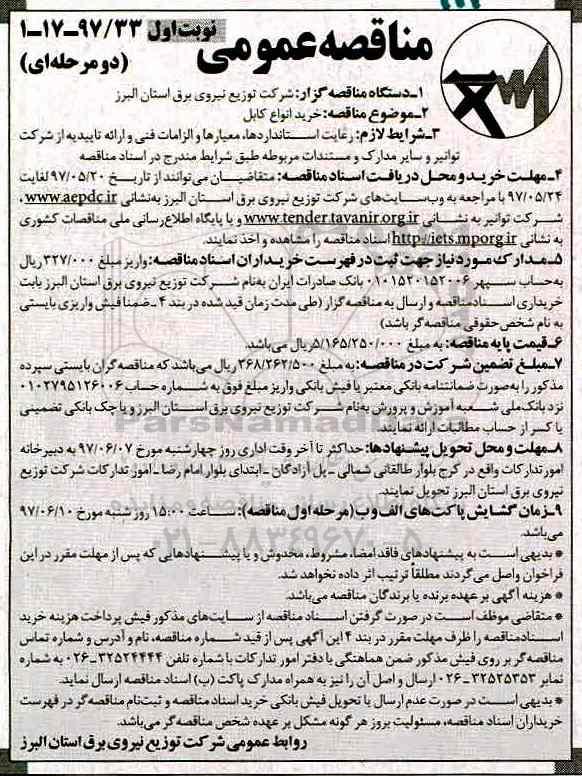 نوبت اول ۹۷/۳۳-۱۷-۱
مناقصه عمومی
(دو مرحله‌ای)
۱-دستگاه مناقصه گزار: شرکت توزیع نیروی برق استان البرز
۲-موضوع مناقصه: خرید انواع کابل
۳-شرایط لازم: رعایت استانداردها، معیارها و الزامات فنی و ارائه تاییدیه از شرکت
توانیر و سایر مدارک و مستندات مربوطه طبق شرایط مندرج در اسناد مناقصه
۴-مهلت خرید و محل دریافت اسناد مناقصه: متقاضیان می‌توانند از تاریخ ۹۷/۰۵/۲۰ لغایت
۹۷/۰۵/۲۴ با مراجعه به وب‌سایت‌های شرکت توزیع نیروی برق استان البرز به‌نشانی www.aepdc.ir ،
شرکت توانیر به نشانی www.tender.tavanir.org.ir و یا پایگاه اطلاع‌رسانی ملی مناقصات کشوری
به نشانی http://iets.mporg.ir اسناد مناقصه را مشاهده و اخذ نمایند.
۵-مدارک مورد نیاز جهت ثبت در فهرست خریداران اسناد مناقصه: واریز مبلغ ۳۲۷/۰۰۰ ریال
به‌حساب سپهر ۰۱۰۱۵۲۰۱۵۲۰۰۶ بانک صادرات ایران به‌نام شرکت توزیع نیروی برق استان البرز بابت
خریداری اسناد مناقصه و ارسال به مناقصه گزار (طی مدت زمان قید شده در بند ۴-ضمنا فیش واریزی بایستی
به نام شخص حقوقی مناقصه‌گر باشد)
۶-قیمت پایه مناقصه: به مبلغ ۵/۱۶۵/۲۵۰/۰۰۰ ریال می‌باشد.
۷-مبلغ تضمین شرکت در مناقصه: به مبلغ ۲۶۸/۲۶۲/۵۰۰ ریال می‌باشد که مناقصه‌گران بایستی سپرده
مذکور را به‌صورت ضمانتنامه بانکی معتبر یا فیش بانکی واریز مبلغ فوق به شماره حساب ۰۱۰۲۷۹۵۱۲۶۰۰۶
نزد بانک ملی شعبه آموزش و پرورش به‌نام شرکت توزیع نیروی برق استان البرز و یا چک بانکی تضمینی
یا کسر از حساب مطالبات ارائه نمایند.
۸-مهلت و محل تحویل پیشنهادها: حداکثر تا آخر وقت اداری روز چهارشنبه مورخ ۹۷/۰۶/۰۷ به دبیرخانه
امور تدارکات واقع در کرج بلوار طالقانی شمالی -پل آزادگان -ابتدای بلوار امام رضا -امور تدارکات شرکت توزیع
نیروی برق استان البرز تحویل نمایند.
۹-زمان گشایش پاکت‌های الف و ب (مرحله اول مناقصه): ساعت ۱۵:۰۰ روز شنبه مورخ ۹۷/۰۶/۱۰
می‌باشد.
* بدیهی است به پیشنهادهای فاقد امضا، مشروط، مخدوش و یا پیشنهادهایی که پس از مهلت مقرر در این
فراخوان واصل می‌گردند مطلقاً ترتیب اثر داده نخواهد شد.
* هزینه آگهی بر عهده برنده یا برندگان مناقصه می‌باشد.
* متقاضی موظف است در صورت گرفتن اسناد مناقصه از سایت‌های مذکور فیش پرداخت هزینه خرید
اسناد مناقصه را ظرف مهلت مقرر در بند ۴ این آگهی پس از قید شماره مناقصه، نام و آدرس و شماره تماس
مناقصه‌گر بر روی فیش مذکور ضمن هماهنگی با دفتر امور تدارکات با شماره تلفن ۳۲۵۲۴۴۴۴-۰۲۶ به شماره
نمابر ۳۲۵۲۵۳۵۳-۰۲۶ ارسال و اصل آن را نیز به همراه مدارک پاکت (ب) اسناد مناقصه ارسال نماید.
* بدیهی است در صورت عدم ارسال یا تحویل فیش بانکی خرید اسناد مناقصه و ثبت‌نام مناقصه‌گر در فهرست
خریداران اسناد مناقصه، مسئولیت بروز هر گونه مشکل بر عهده شخص مناقصه‌گر می‌باشد.
روابط عمومی شرکت توزیع نیروی برق استان البرز
ParsNamad
۰۲۱-۸۸۳۴۹۶۷۰-۵